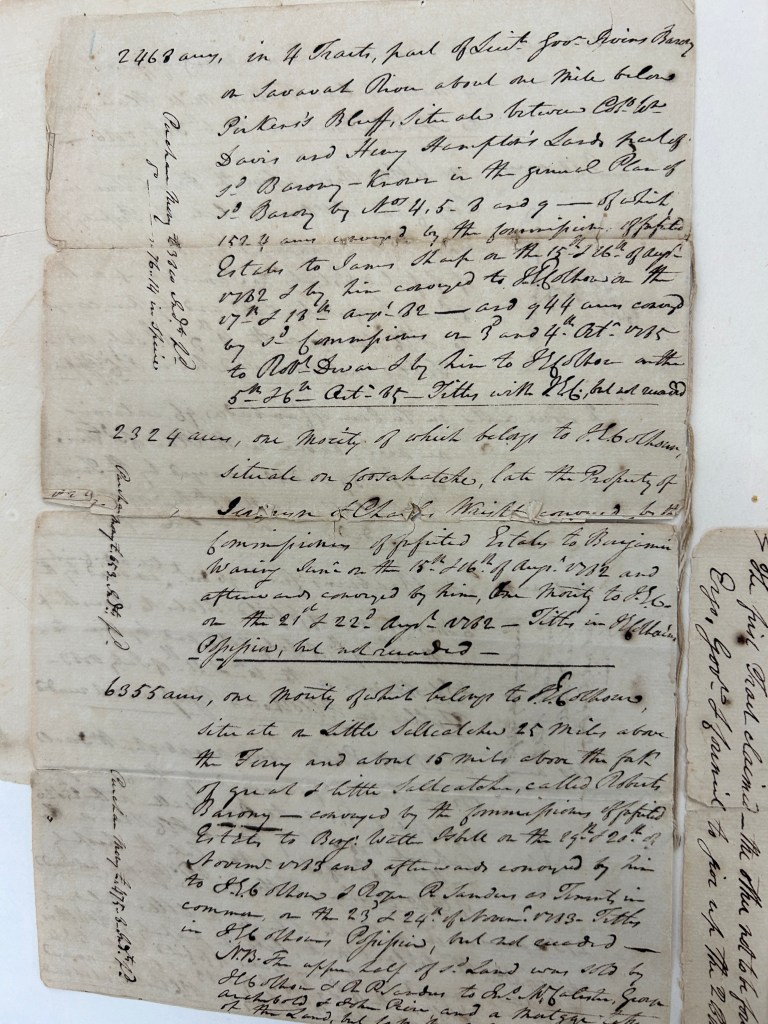 2468 acres, in 4 Tracts, part of Lieut. Gov.r Barony
on Savanah River about one Mile below
Pickens's Bluff, Situate between Col.o Wm
Davis and Henry Hampton's Lands part of
sd Barony - Known in the general Plan of
sd Barony by Nos 4, 5, 8 and 9 — of which
1524 acres conveyed by the Commissioners of forfeited
Estates to James Sharp on the 15th & 16th of Augt
1782 & by him conveyed to J.E. Colhoun on the
17th & 18th Augt 82 — and 944 acres conveyed
by sd Commissioners on 3d and 4th Octr 1785
to Robt Dewar & by him to J E Colhoun on the
5th & 6th Octr 85 — Titles with J.E.C. but not recorded
Purchase Mony
in Specie
2324 acres, one Moiety of which belongs to J.E. Colhoun,
situate on Coosahatche, late the Property of
of Charles Wright conveyed by the
Commissioners of forfeited Estates to Benjamin
Waring Junr on the 15th & 16th of Augt 1782 and
afterwards conveyed by him, One Moiety to J.E.C.
on the 21st & 22d Augt 1782 — Titles in J E Colhoun's
Possession, but not recorded —
Purchase Mony
6355 acres, one Moiety of which belongs to J.E. Colhoun,
situate on Little Saltcatcher 25 Miles above
the Ferry and about 15 miles above the fork
of great & little Saltcatcher, called Roberts
Barony — conveyed by the Commissioners of forfeited
Estates to Benj. on the 19th & 20th of
Novemr 1783 and afterwards conveyed by him
to J.E. Colhoun & Roger P. Sanders as Tenants in
common, on the 23d & 24th of Novemr 1783. Titles
in J.E. Colhouns Possession, but not recorded —
Purchase Mony
N.B. The upper half of sd Land was sold by
J E Colhoun & R P Sanders to Jno McCalister, George
Archibold & John and a Mortgage
of the Land, but
The first Tract claimed — the other not to be
Ergo, Govr